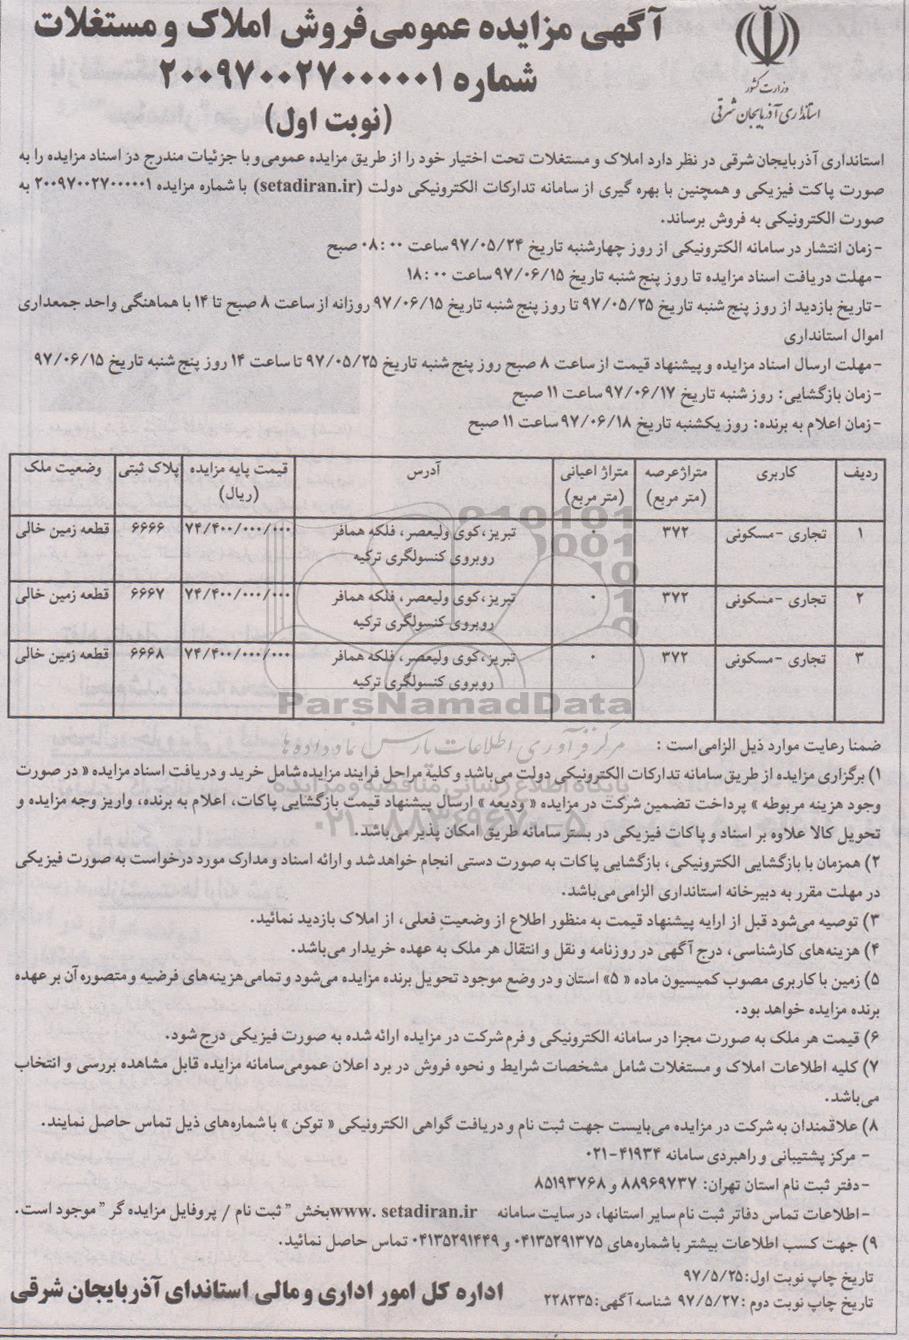 آگهی مزایده عمومی فروش املاک و مستغلات
شماره ۲۰۰۹۷۰۰۲۷۰۰۰۰۰۱
(نوبت اول)
وزارت کشور
استانداری آذربایجان شرقی
استانداری آذربایجان شرقی در نظر دارد املاک و مستغلات تحت اختیار خود را از طریق مزایده عمومی و با جزئیات مندرج در اسناد مزایده را به
صورت پاکت فیزیکی و همچنین با بهره گیری از سامانه تدارکات الکترونیکی دولت (setadiran.ir) با شماره مزایده ۲۰۰۹۷۰۰۲۷۰۰۰۰۰۱ به
صورت الکترونیکی به فروش برساند.
-زمان انتشار در سامانه الکترونیکی از روز چهارشنبه تاریخ ۹۷/۰۵/۲۴ ساعت ۰۸:۰۰ صبح
-مهلت دریافت اسناد مزایده تا روز پنج شنبه تاریخ ۹۷/۰۶/۱۵ ساعت ۱۸:۰۰
-تاریخ بازدید از روز پنج شنبه تاریخ ۹۷/۰۵/۲۵ تا روز پنج شنبه تاریخ ۹۷/۰۶/۱۵ روزانه از ساعت ۸ صبح تا ۱۴ با هماهنگی واحد جمعداری
اموال استانداری
-مهلت ارسال اسناد مزایده و پیشنهاد قیمت از ساعت ۸ صبح روز پنج شنبه تاریخ ۹۷/۰۵/۲۵ تا ساعت ۱۴ روز پنج شنبه تاریخ ۹۷/۰۶/۱۵
-زمان بازگشایی: روز شنبه تاریخ ۹۷/۰۶/۱۷ ساعت ۱۱ صبح
-زمان اعلام به برنده: روز یکشنبه تاریخ ۹۷/۰۶/۱۸ ساعت ۱۱ صبح
ردیف کاربری متراژ عرصه (متر مربع) متراژ اعیانی (متر مربع) آدرس قیمت پایه مزایده (ریال) پلاک ثبتی وضعیت ملک
۱ تجاری -مسکونی ۳۷۲ ۰ تبریز، کوی ولیعصر، فلکه همافر روبروی کنسولگری ترکیه ۷۴/۴۰۰/۰۰۰/۰۰۰ ۶۶۶۶ قطعه زمین خالی
۲ تجاری -مسکونی ۳۷۲ ۰ تبریز، کوی ولیعصر، فلکه همافر روبروی کنسولگری ترکیه ۷۴/۴۰۰/۰۰۰/۰۰۰ ۶۶۶۷ قطعه زمین خالی
۳ تجاری -مسکونی ۳۷۲ ۰ تبریز، کوی ولیعصر، فلکه همافر روبروی کنسولگری ترکیه ۷۴/۴۰۰/۰۰۰/۰۰۰ ۶۶۶۸ قطعه زمین خالی
ParsNamadData
مرکز فرآوری اطلاعات پارس نماد داده ها
پایگاه اطلاع رسانی مناقصه و مزایده
۰۲۱-۸۸۳۴۹۶۷۰-۵
ضمنا رعایت موارد ذیل الزامی است :
۱) برگزاری مزایده از طریق سامانه تدارکات الکترونیکی دولت می‌باشد و کلیه مراحل فرایند مزایده شامل خرید و دریافت اسناد مزایده « در صورت
وجود هزینه مربوطه » پرداخت تضمین شرکت در مزایده « ودیعه » ارسال پیشنهاد قیمت بازگشایی پاکات، اعلام به برنده، واریز وجه مزایده و
تحویل کالا علاوه بر اسناد و پاکات فیزیکی در بستر سامانه طریق امکان پذیر می‌باشد.
۲) همزمان با بازگشایی الکترونیکی، بازگشایی پاکات به صورت دستی انجام خواهد شد و ارائه اسناد و مدارک مورد درخواست به صورت فیزیکی
در مهلت مقرر به دبیرخانه استانداری الزامی می‌باشد.
۳) توصیه می‌شود قبل از ارایه پیشنهاد قیمت به منظور اطلاع از وضعیت فعلی، از املاک بازدید نمائید.
۴) هزینه‌های کارشناسی، درج آگهی در روزنامه و نقل و انتقال هر ملک به عهده خریدار می‌باشد.
۵) زمین با کاربری مصوب کمیسیون ماده « ۵» استان و در وضع موجود تحویل برنده مزایده می‌شود و تمامی هزینه‌های فرضیه و متصوره آن بر عهده
برنده مزایده خواهد بود.
۶) قیمت هر ملک به صورت مجزا در سامانه الکترونیکی و فرم شرکت در مزایده ارائه شده به صورت فیزیکی درج شود.
۷) کلیه اطلاعات املاک و مستغلات شامل مشخصات شرایط و نحوه فروش در برد اعلان عمومی سامانه مزایده قابل مشاهده بررسی و انتخاب
می‌باشد.
۸) علاقمندان به شرکت در مزایده می‌بایست جهت ثبت نام و دریافت گواهی الکترونیکی « توکن » با شماره‌های ذیل تماس حاصل نمایند.
- مرکز پشتیبانی و راهبردی سامانه ۴۱۹۳۴-۰۲۱
-دفتر ثبت نام استان تهران: ۸۸۹۶۹۷۳۷ و ۸۵۱۹۳۷۶۸
-اطلاعات تماس دفاتر ثبت نام سایر استانها، در سایت سامانه www. setadiran.ir بخش " ثبت نام / پروفایل مزایده گر " موجود است.
۹) جهت کسب اطلاعات بیشتر با شماره‌های ۰۴۱۳۵۲۹۱۳۷۵ و ۰۴۱۳۵۲۹۱۴۴۹ تماس حاصل نمائید.
تاریخ چاپ نوبت اول: ۹۷/۵/۲۵
تاریخ چاپ نوبت دوم : ۹۷/۵/۲۷ شناسه آگهی: ۲۲۸۲۳۵
اداره کل امور اداری و مالی استاندای آذربایجان شرقی